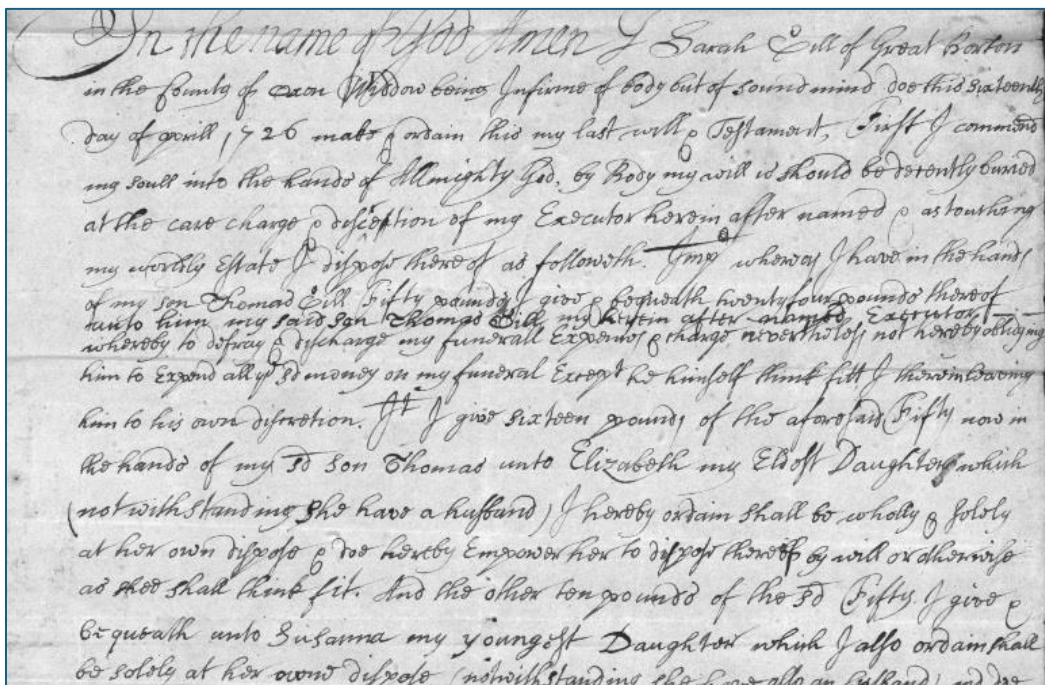 In the name of God Amen I Sarah Gill of Great Borton
in the County of Oxon Widdow being Infirme of body but of sound mind doe this sixteenth
day of Aprill 1726 make & ordain this my last will & Testament, First I commend
my soull into the hands of Allmighty God, by Body my will is should be decently buried
at the care charge & discretion of my Executor herein after named & as touching
my worldly Estate I dispose there of as followeth. Imp whereas I have in the hands
of my son Thomas Gill Fifty pounds I give & bequeath twenty four pounds thereof
unto him my said son Thomas Gill my herein after named Executor
whereby to defray & discharge my funerall Expences & charge nevertheless not hereby obliging
him to Expend all ye sd money on my funeral Except he himself think fitt I therein leaving
him to his own discretion. It I give sixteen pounds of the aforesaid Fifty now in
the hands of my sd son Thomas unto Elizabeth my Eldest Daughter which
(notwithstanding she have a husband) I hereby ordain shall be wholly & solely
at her own dispose & doe hereby Empower her to dispose thereof by will or otherwise
as shee shall think fit. And the other ten pounds of the sd Fifty I give &
bequeath unto Susanna my youngest Daughter which I also ordain shall
be solely at her owne dispose (notwithstanding she have also an husband) and doe